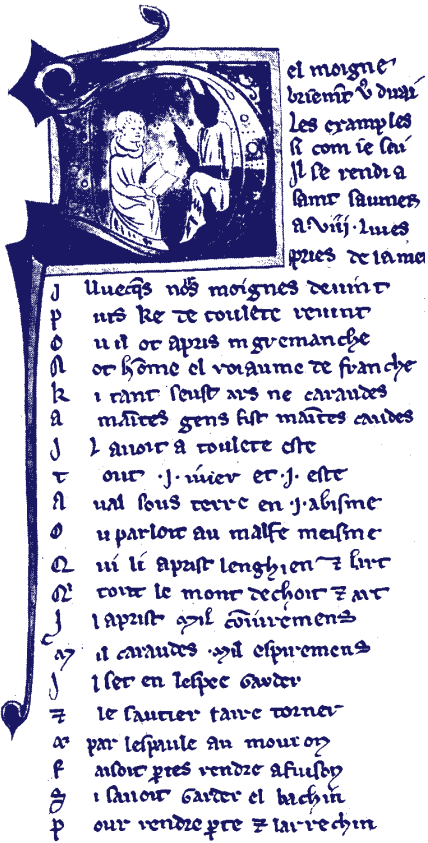 Del moigne
briemt v9 dirai
Les examples
si com ie sai
Il se rendi a
saint saumer
a .viii. liues
pries de la mer
I lluecq̄s noirs moignes deuint
P uis ke de toulete reuint
O u il ot apris nigremanche
N ot home el roiaume de franche
K i tant seust ars ne caraudes
A maītes gens fist maītes caudes
I l auoit a toulete este
T out .i. iuier et .i. este
A ual sous terre en .i. abisme
O u parloit au malfe meisme
Q ui li aprist lenghien ⁊ lart
Q' tout le mont dechoit ⁊ art
I l aprist mil cōiuremens
M il caraudes .mil espiremens
I l set en lespee garder
⁊ le sautier faire torner
⁊ par lespaule au mouton
F aisoit ꝑtes rendre a fuison
I l sauoit garder el bachin
P our rendre ꝑte ⁊ larrechin